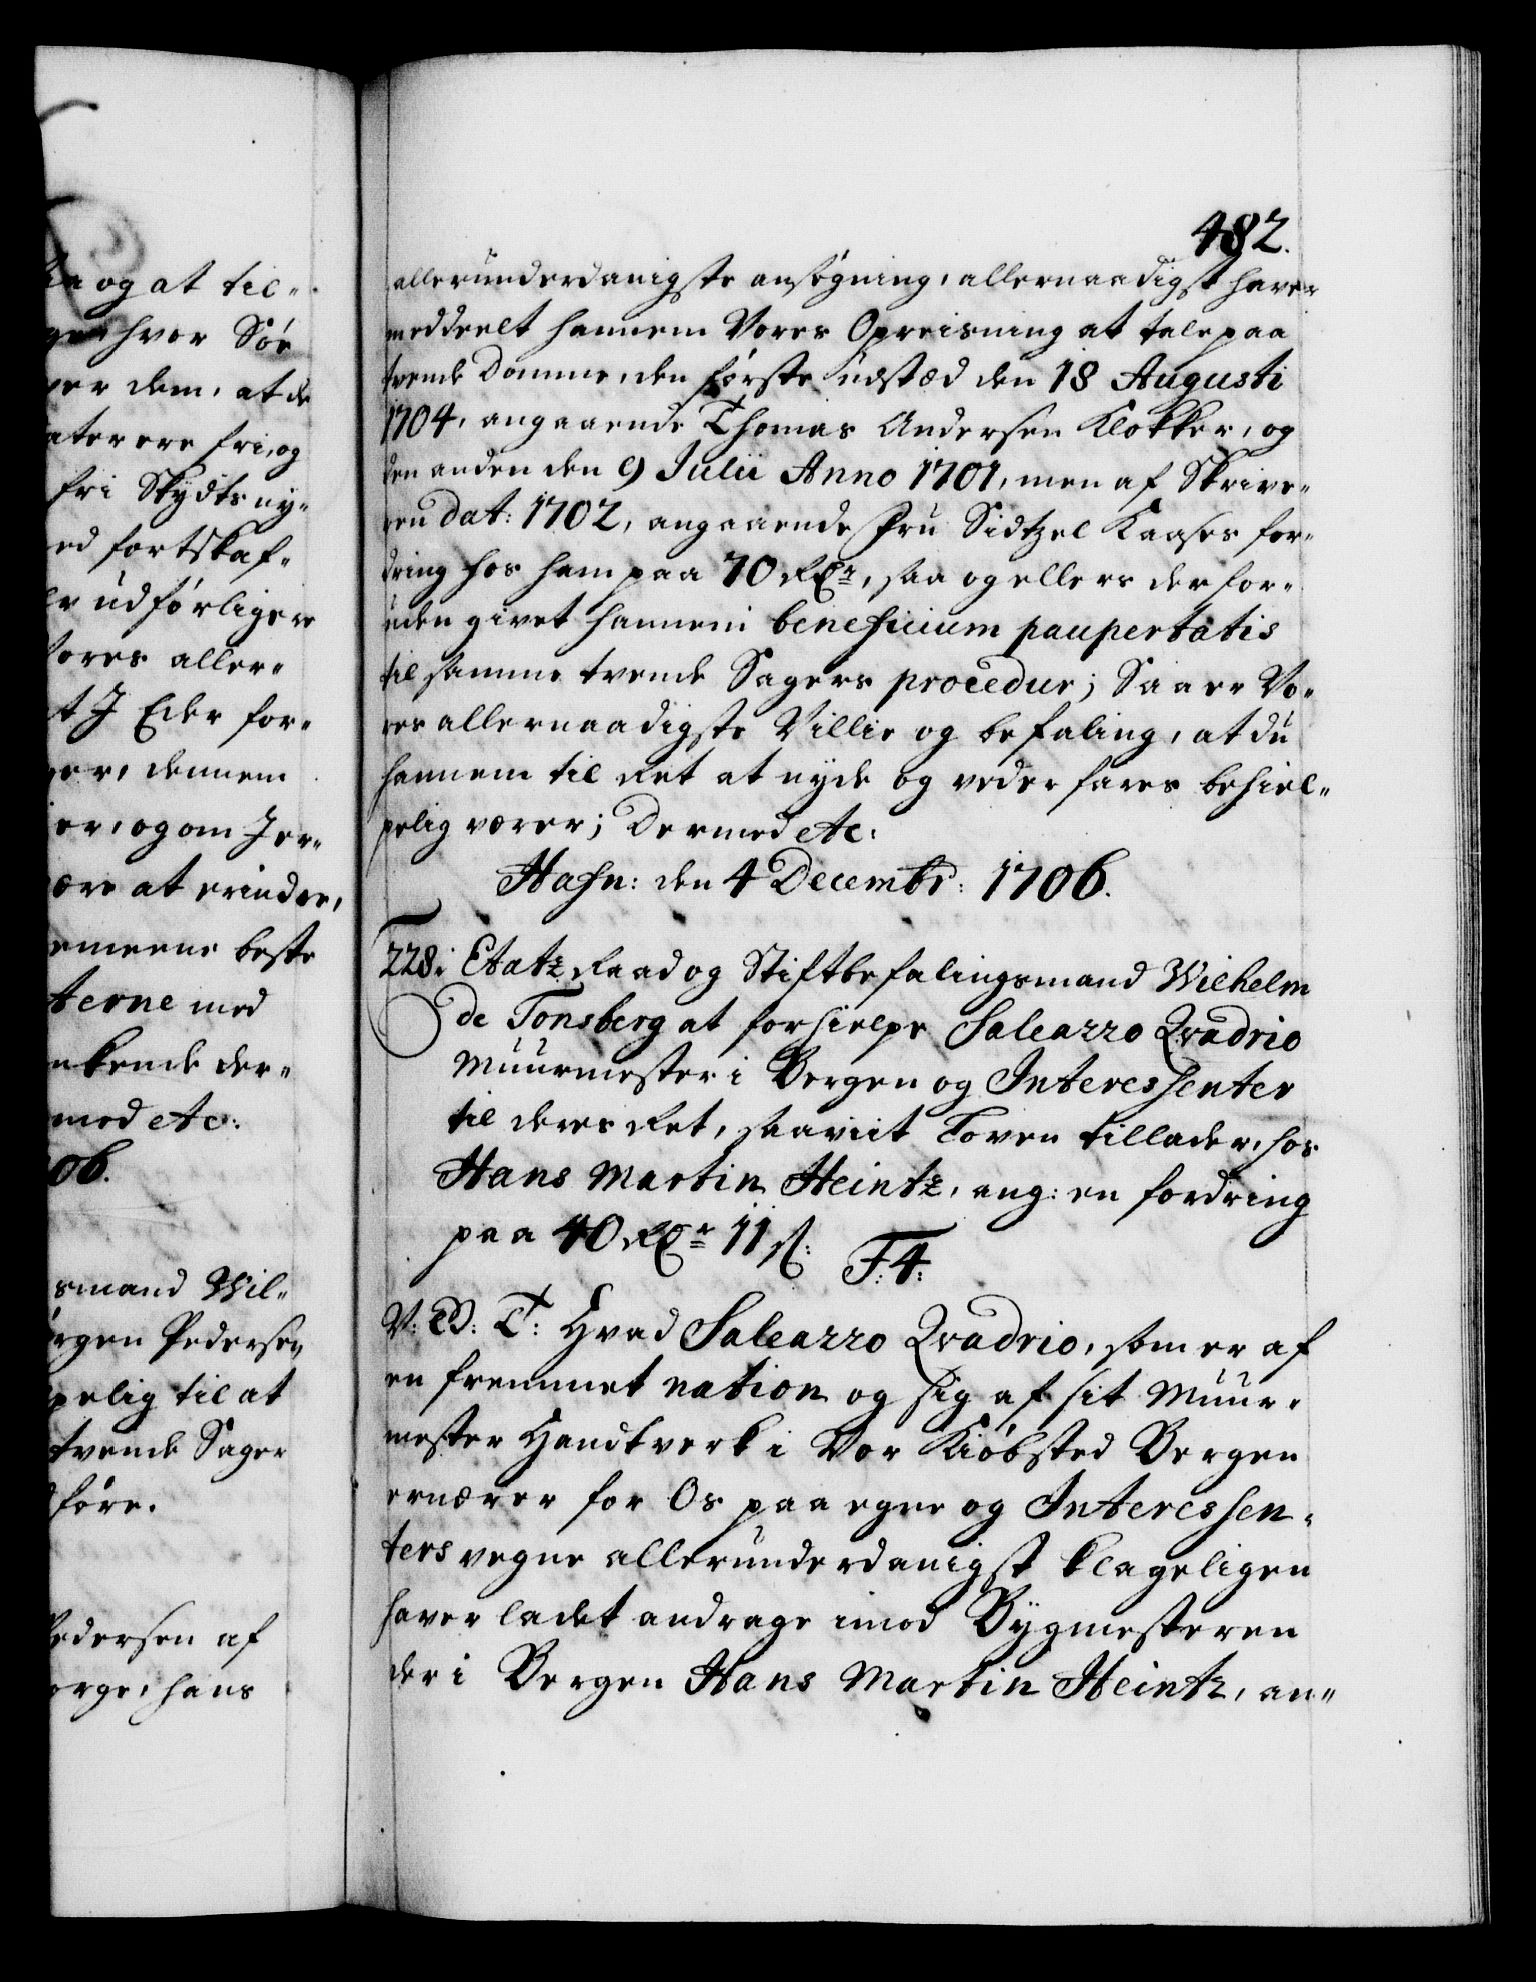 ke og at til-
ger hvor Sör
ver dem, at de
ater ere fri, og
fri Skydts ny-
ed fortskaf-
er udförligere
Vores aller-
t J Eder for-
ger, dennem
er, og om Jer-
ære at erindre,
emeene beste
terne med
nkende der-
med etc:
06.
smand Wil-
ørgen Pedersen
pelig til at
tvende Sager
före.
Pedersen af
orge, hans
482.
allerunderdanigste ansögning, allernaadigst haver
meddeelt hannem Vores Opreisning at tale paa
tvende Domme, den förste udstæd den 18 Augusti
1704, angaaende Thomas Andersen Klokker, og
den anden den 9 Julii Anno 1701, men af Skrive-
ren dat: 1702, angaaende Fru Sidtzel Kaases for-
dring hos ham paa 70 Rdr, saa og ellers der for-
uden givet hannem beneficium paupertatis
til samme tvende Sagers procedur; Saa er Vo-
res allernaadigste Villie og befaling, at du
hannem til Ret at nyde og vederfares behiel-
pelig værer; Dermed etc:
Hafn: den 4 Decembr: 1706.
228. Etatz Raad og Stiftbefalingsmand Wilhelm
de Tonsberg at forhielpe Saleazzo Qvadrio
Muurmester i Bergen og Interessenter
til deres Ret, saaviit Loven tillader, hos
Hans Martin Heintz, ang: en fordring
paa 40 Rdr 11 ß:
F: 4:
V: G: T: Hvad Saleazzo Qvadrio, som er af
en fremmet nation og sig af sit Muur-
mester Handtverk i Vor Kiöbsted Bergen
ernærer for Os paa egne og Interessen-
ters vegne allerunderdanigst klageligen
haver ladet andrage imod Bygmesteren
der i Bergen Hans Martin Heintz, an-